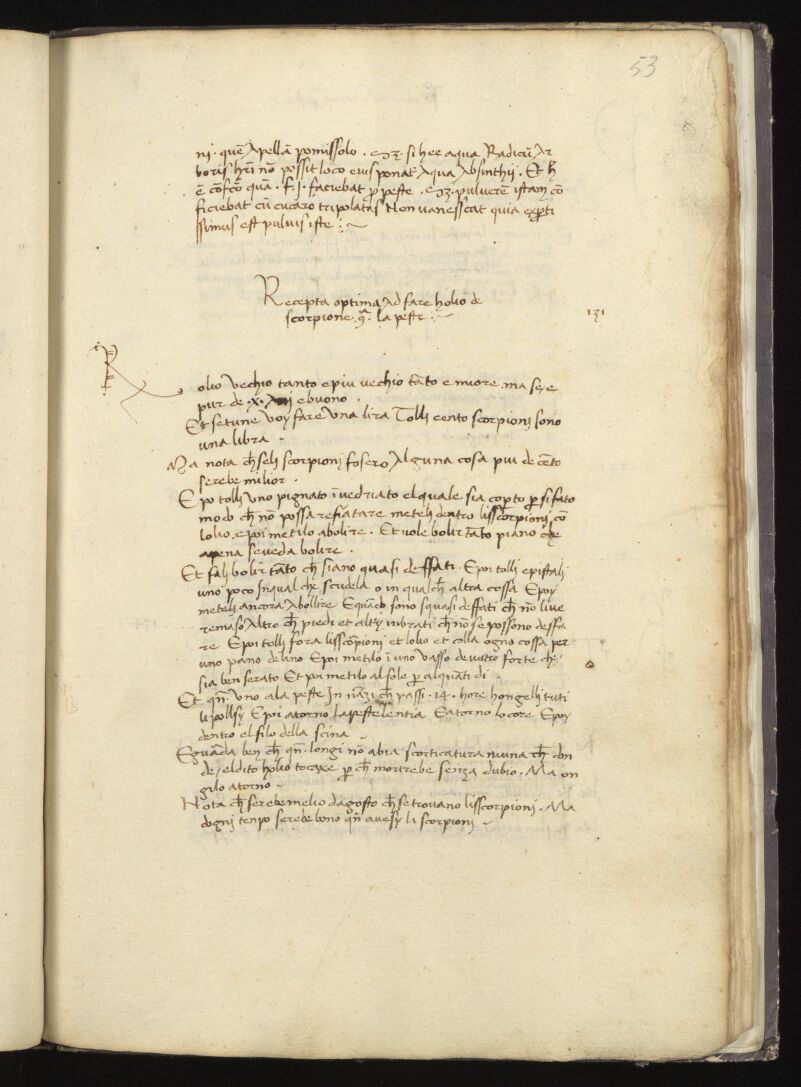 53
ni · quē Apellā pomissolo · Sz si hec aqua Radicū Ar
boris hrī nō possit loco eius ponat Aqua Absinthij · Et h
ē cōfco quā · f · J · faciebat p peste · Sz pulverē istam cō
ficiebat cū cucaro tripolatas Non vanesscat quia exprti
ssimus est pulvis iste :~
Recepta optima Ad fare holio de
scorpione · 9ª · la peste :~
131
R
olio vechio tanto e piu vechio tāto e miore ma se e
pur de · X · e buono ·
Et se tu ne voy fare una lira Tolli cento scorpionj sono
una libra ·
Ma nota ch̄ seli scorpionj fosero Alguna cosa piu de cēto
serebe milior ·
E po tolli uno pignato īvedriato el quale sia copto p si fato
modo ch̄ nō possa refiatare meteli dentro lisscorpionj cō
lolio e poi metilo a bolire · Et vole bolir tāto piano che
apena se veda bolire ·
Et falj bolir tāto ch̄ siano quasi deffati · Epoi tolli e pistalj
uno poco Jn qual che scudela o in qualch̄ altra cossa Epoy
metelj ancora Abollire Equādo sono squasi deffati ch̄ nō live
remaso Altro ch̄ piedi et altrj nibrati ch̄ nō se possono deffa
re Epoi tolli fora lisscorpioni et lolio et colla ogno cossa per
uno pano de lino Epoi metilo ī uno vasso de vetro forte che
sia ben serato Et poi metilo al sole p alquāti di ·
Et qn̄ · uno a la peste Jn nāzi ch̄ passi · 14 · hore hongelli tuti
li pollsy Epoi atorno la pestelentia E atorno lo core Epoy
dentro el filo della scina ~
E guarda ben ch̄ qn̄ · longi nō abia scorticatura niuna ch̄ don
de el dito holio tocaxe p ch̄ morirebe senza dubio · Ma on
gilo atorno ~
Nota ch̄ serebe melio dagosto ch̄ se trovano lisscorpioni · Ma
dognj tenpo serebe bono qn̄ avesy li scorpionj ~